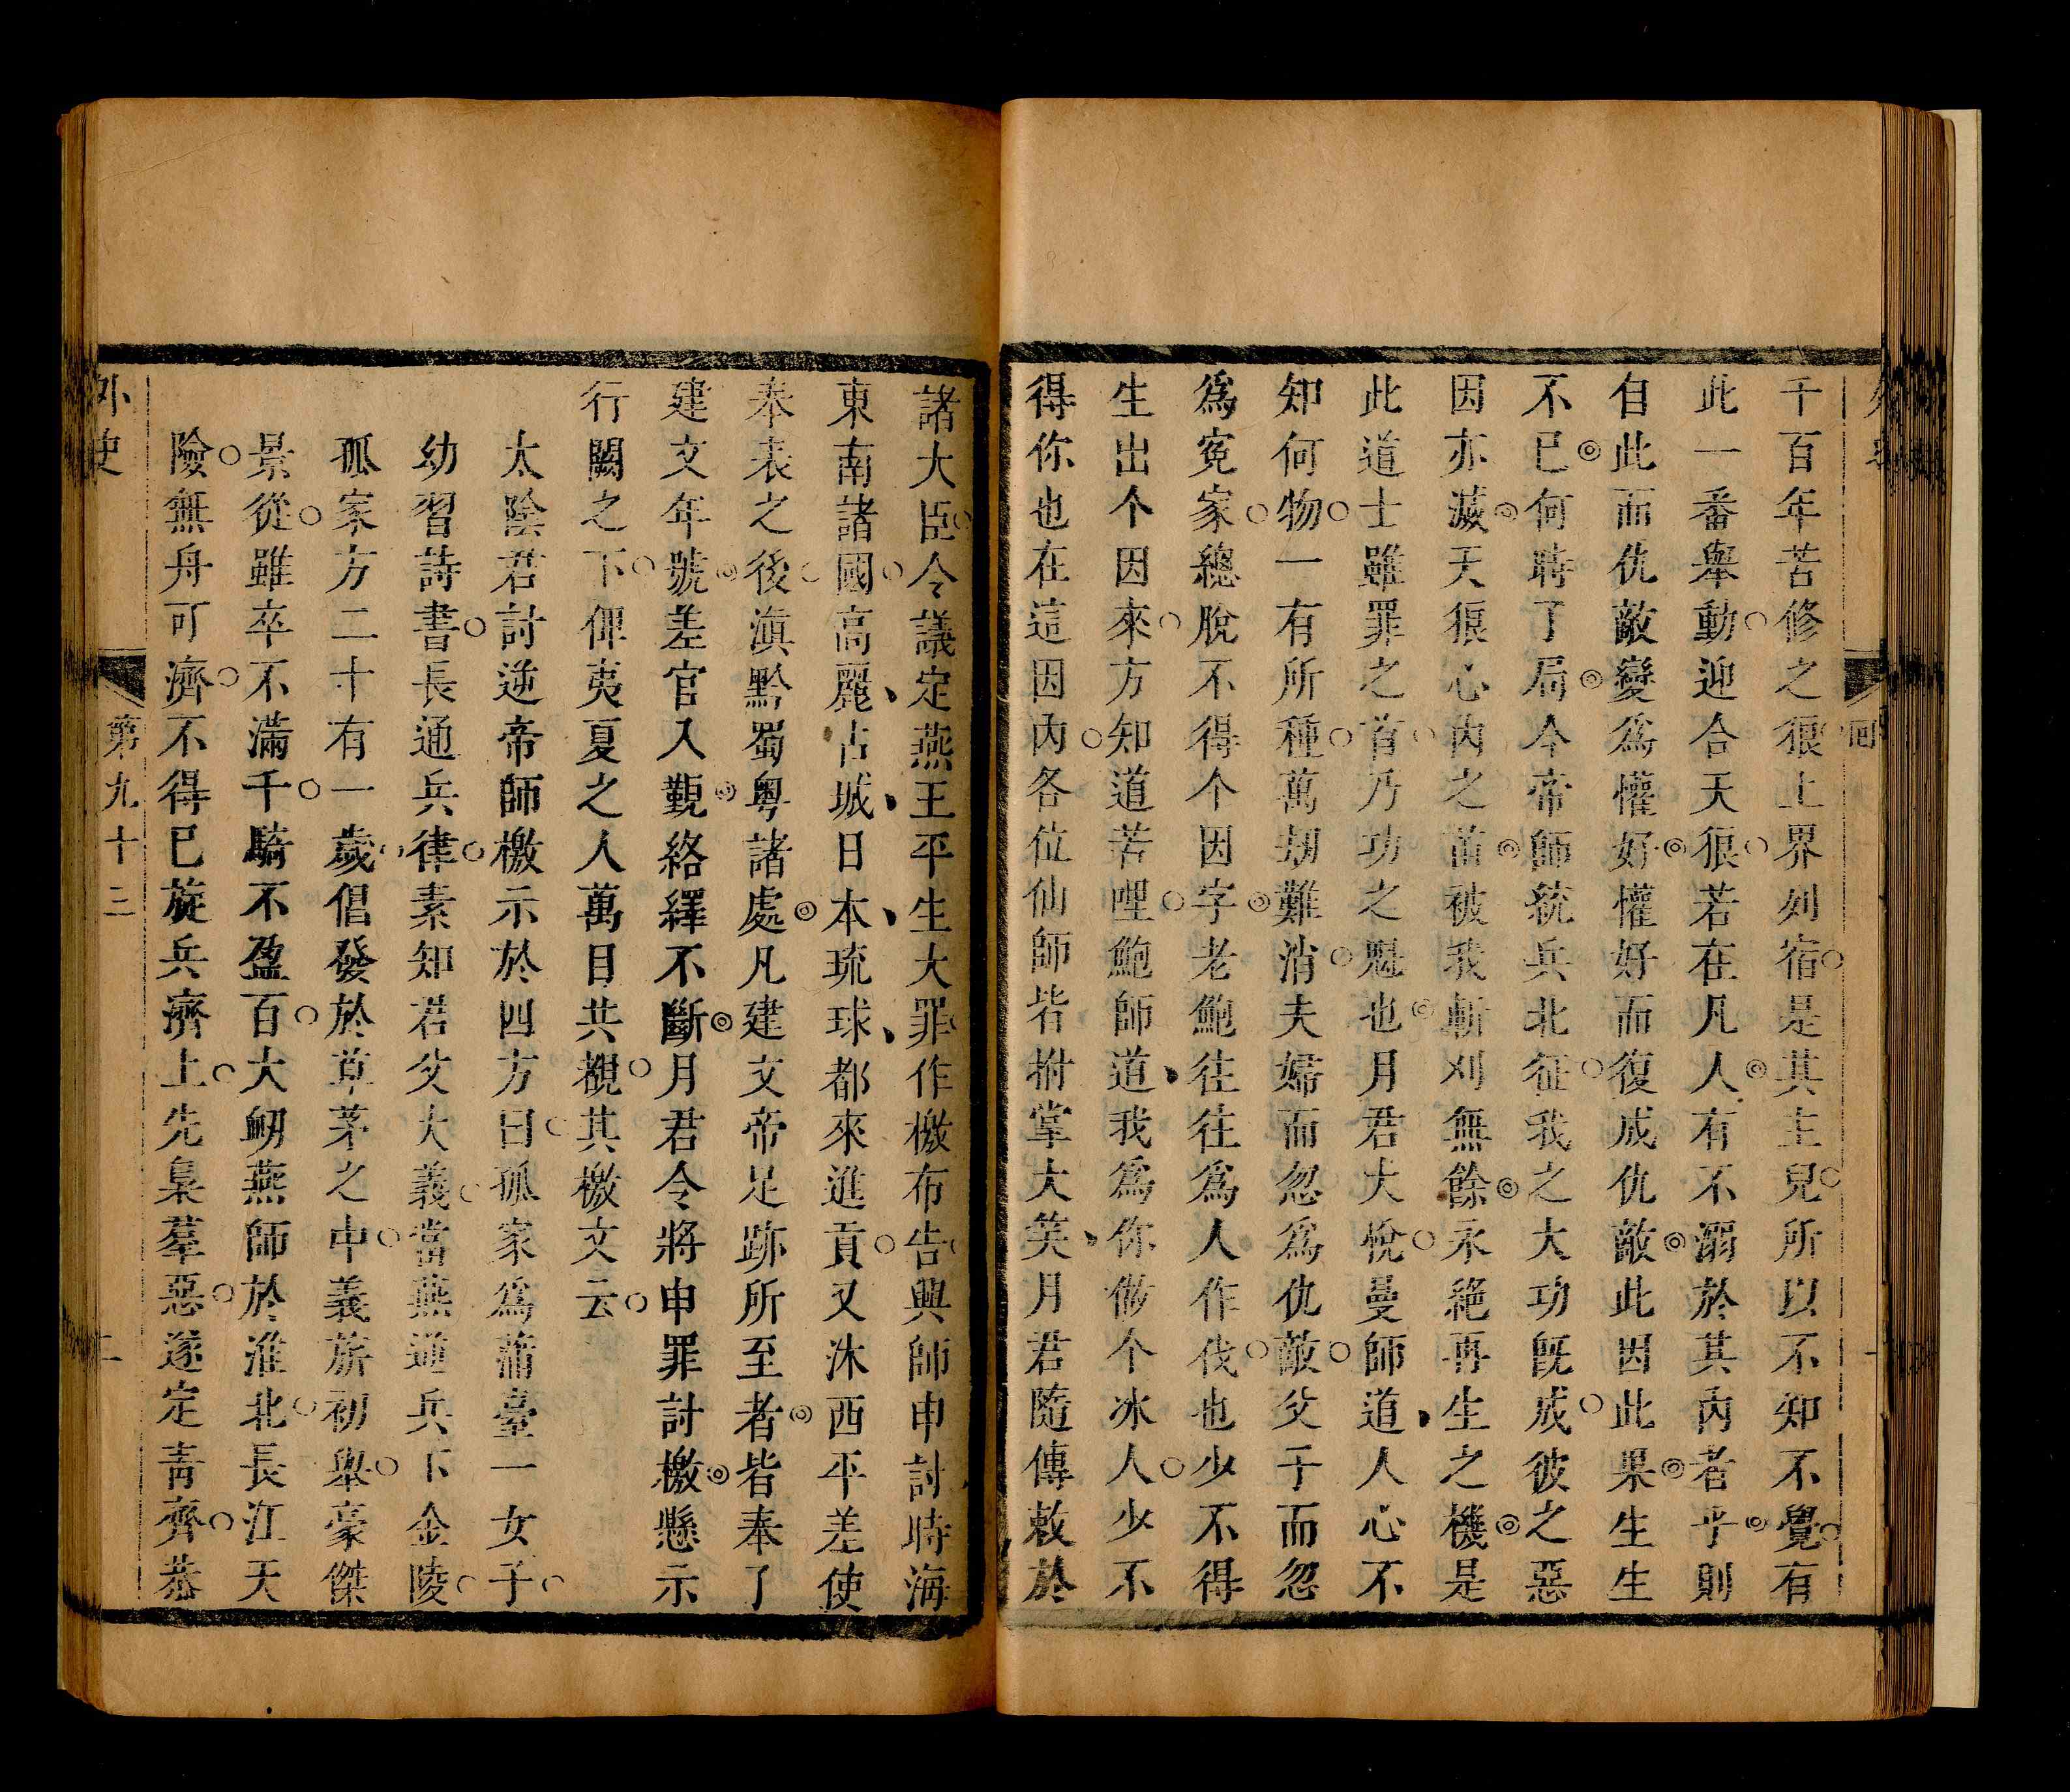 千百年苦修之狠上界列宿是其主兒所以不知不覺有
此一番舉動迎合天狠若在凡人有不溺於其內者乎則
自此而仇敵變爲懽好懽好而復成仇敵此因此果生生
不已何時了局今帝師統兵北征我之大功既成彼之惡
因亦滅天狼心內之苗被我斬刈無餘永絕再生之機是
此道士雖罪之首乃功之魁也月君大悅曼師道人心不
知何物一有所種萬刼難消夫婦而忽爲仇敵父子而忽
爲寃家總脫不得个因字老鮑往往爲人作伐也少不得
生出个因來方知道苦哩鮑師道我爲你做个冰人少不
得你也在這因內各位仙師皆拊掌大笑月君隨傳敕於
諸大臣令議定燕王平生大罪作檄布告興師申討時海
東南諸國高麗占城日本琉球都來進貢又沐西平差使
奉表之後滇黔蜀粤諸處凡建文帝足跡所至者皆奉了
建文年號差官入覲絡繹不斷月君令將申罪討檄懸示
行闕之下俾夷夏之人萬目共覩其檄文云
太陰君討逆帝師檄示於四方曰孤家爲蒲臺一女子
幼習詩書長通兵律素知君父大義當燕逆兵下金陵
孤家方二十有一歲倡發於草茅之中義旂初舉豪傑
景從雖卒不滿千騎不盈百大衂燕師於淮北長江天
險無舟可濟不得已旋兵濟上先梟羣惡遂定青齊恭
外史
第九十三
二
回